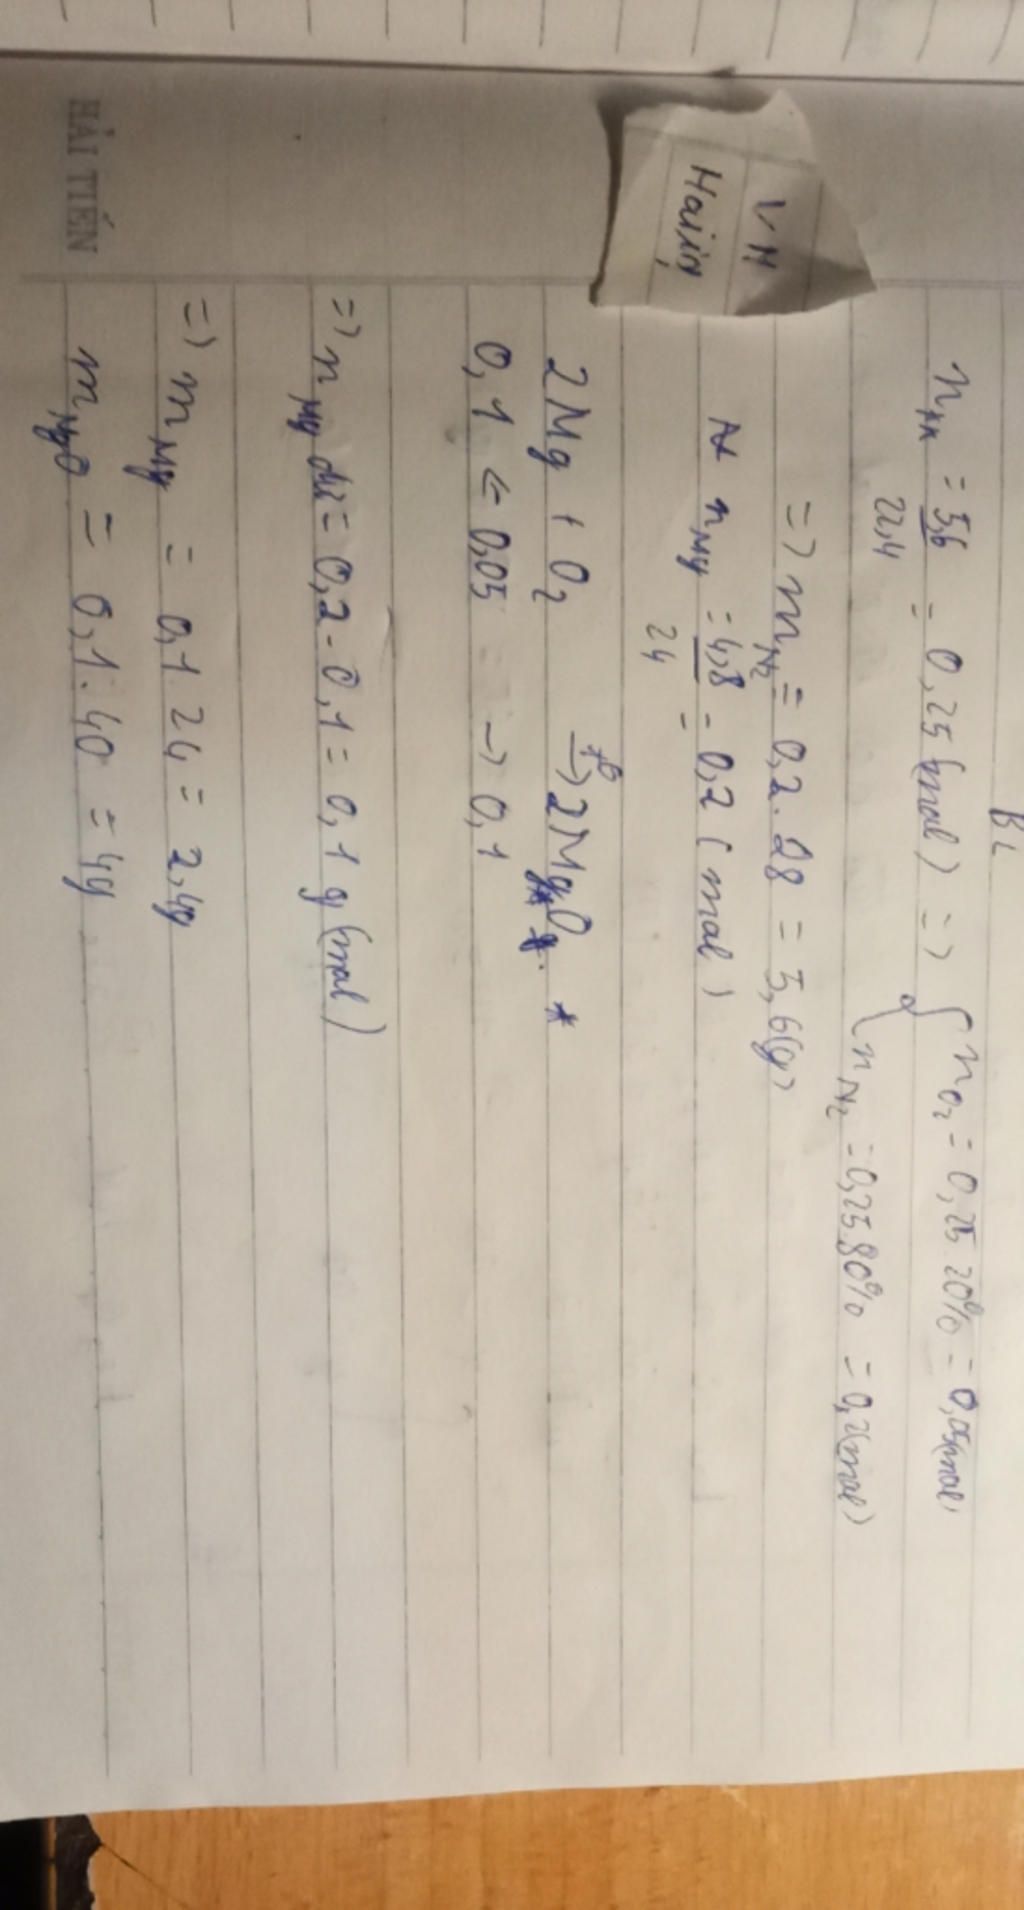 BL
n hh = 5,6 / 22,4 = 0,25 (mol) => { n O2 = 0,25 20% = 0,05(mol)
n N2 = 0,25.80% = 0,2(mol)
=> m N2 = 0,2.28 = 5,6(g)
n Mg = 4,8 / 24 = 0,2 (mol)
VH
Hairin
2Mg + O2 t° → 2MgO
0,1 ← 0,05 → 0,1
=> n Mg dư = 0,2 - 0,1 = 0,1 g (mol)
=> m Mg = 0,1 24 = 2,4g
m MgO = 0,1.40 = 4g
HẢI TIẾN